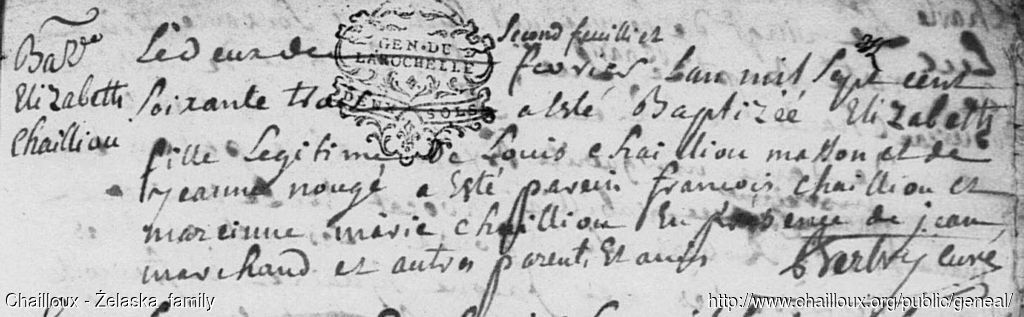 Second feuilliet
Bap.e
Elizabeth
Chailliou
Le deux de fevrier Lan mil Sept cent
Soixante trois a Esté Baptizéé Elizabeth
fille Legitime De Louis Chailliou masson et de
Jeanne nougé a Esté parein francois Chailliou et
mareinne marie Chailliou En presence de jean
marchand et autres parent, Et amis
curé
GEN. DE
LA ROCHELLE
DEUX SOLS
Chailloux - Żelaska family
http://www.chailloux.org/public/geneal/